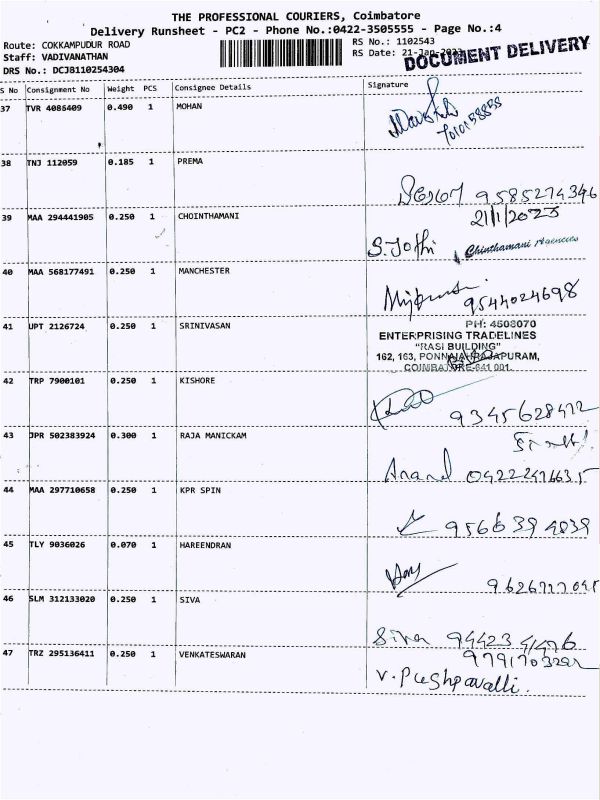 THE PROFESSIONAL COURIERS, Coimbatore
Delivery Runsheet - PC2 - Phone No.:0422-3505555 - Page No.:4
Route: COKKAMPUDUR ROAD
RS No.: 1102543
Staff: VADIVANATHAN
RS Date: 21-Jan-2023
DRS No.: DCJ8110254304
DOCUMENT DELIVERY
S No Consignment No Weight PCS Consignee Details Signature
37 TVR 4086409 0.490 1 MOHAN
38 TNJ 112059 0.185 1 PREMA
9585274346
21/1/2023
39 MAA 294441905 0.250 1 CHOINTHAMANI
S. Jothi Chinthamani Agencies
40 MAA 568177491 0.250 1 MANCHESTER
9544024698
41 UPT 2126724 0.250 1 SRINIVASAN
PH: 4503070
ENTERPRISING TRADELINES
"RASI BUILDING"
162, 163, PONNAIAHRAJAPURAM,
COIMBATORE-641 001.
42 TRP 7900101 0.250 1 KISHORE
9345628412
43 JPR 502383924 0.300 1 RAJA MANICKAM
Anand
44 MAA 297710658 0.250 1 KPR SPIN
9566394839
45 TLY 9036026 0.070 1 HAREENDRAN
46 SLM 312133020 0.250 1 SIVA
Siva
47 TRZ 295136411 0.250 1 VENKATESWARAN
V. Pushpavalli.